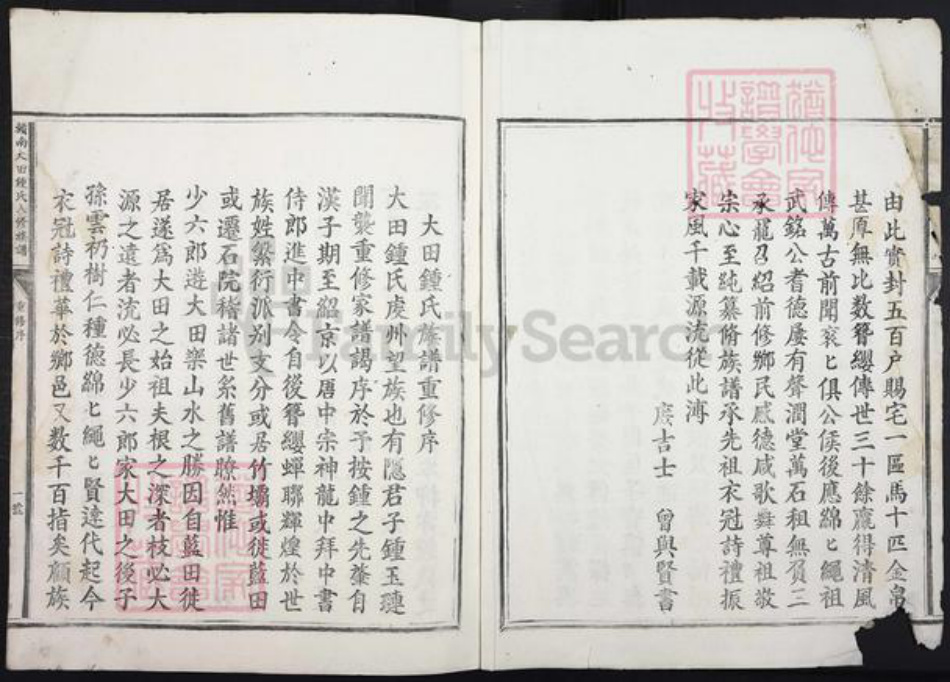 由此實封五百户賜宅一區馬十匹金帛
甚厚無比数簪纓傳世三十餘贏得清風
傳萬古前聞衮匕俱公侯後應綿匕繩祖
武銘公耆德屢有聲潤堂萬石祖無負三
承龍召紹前修鄉民感德咸歌舞尊祖敬
宗心至純纂脩族譜承先祖衣冠詩禮振
家風千載源流從此溥
庶吉士 曾與賢書
大田鍾氏族譜重修序
大田鍾氏虔州望族也有隱君子鍾玉璉
聞襲重修家譜謁序於予按鍾之先肇自
漢子期至紹京以唐中宗神龍中拜中書
侍郎進中書令自後簪纓蟬聯輝煌於世
族姓繁衍派别支分或居竹壩或徙藍田
或遷石院稽諸世系舊譜瞭然惟
少六郎遊大田樂山水之勝因自藍田徙
居遂爲大田之始祖夫根之深者枝必大
源之遠者流必長少六郎家大田之後子
孫雲礽樹仁種德綿匕繩匕賢達代起今
衣冠詩禮華於鄉邑又数千百指矣顧族
贛南大田鍾氏六修族譜
重修序
猶他家譜學會收藏
FamilySearch